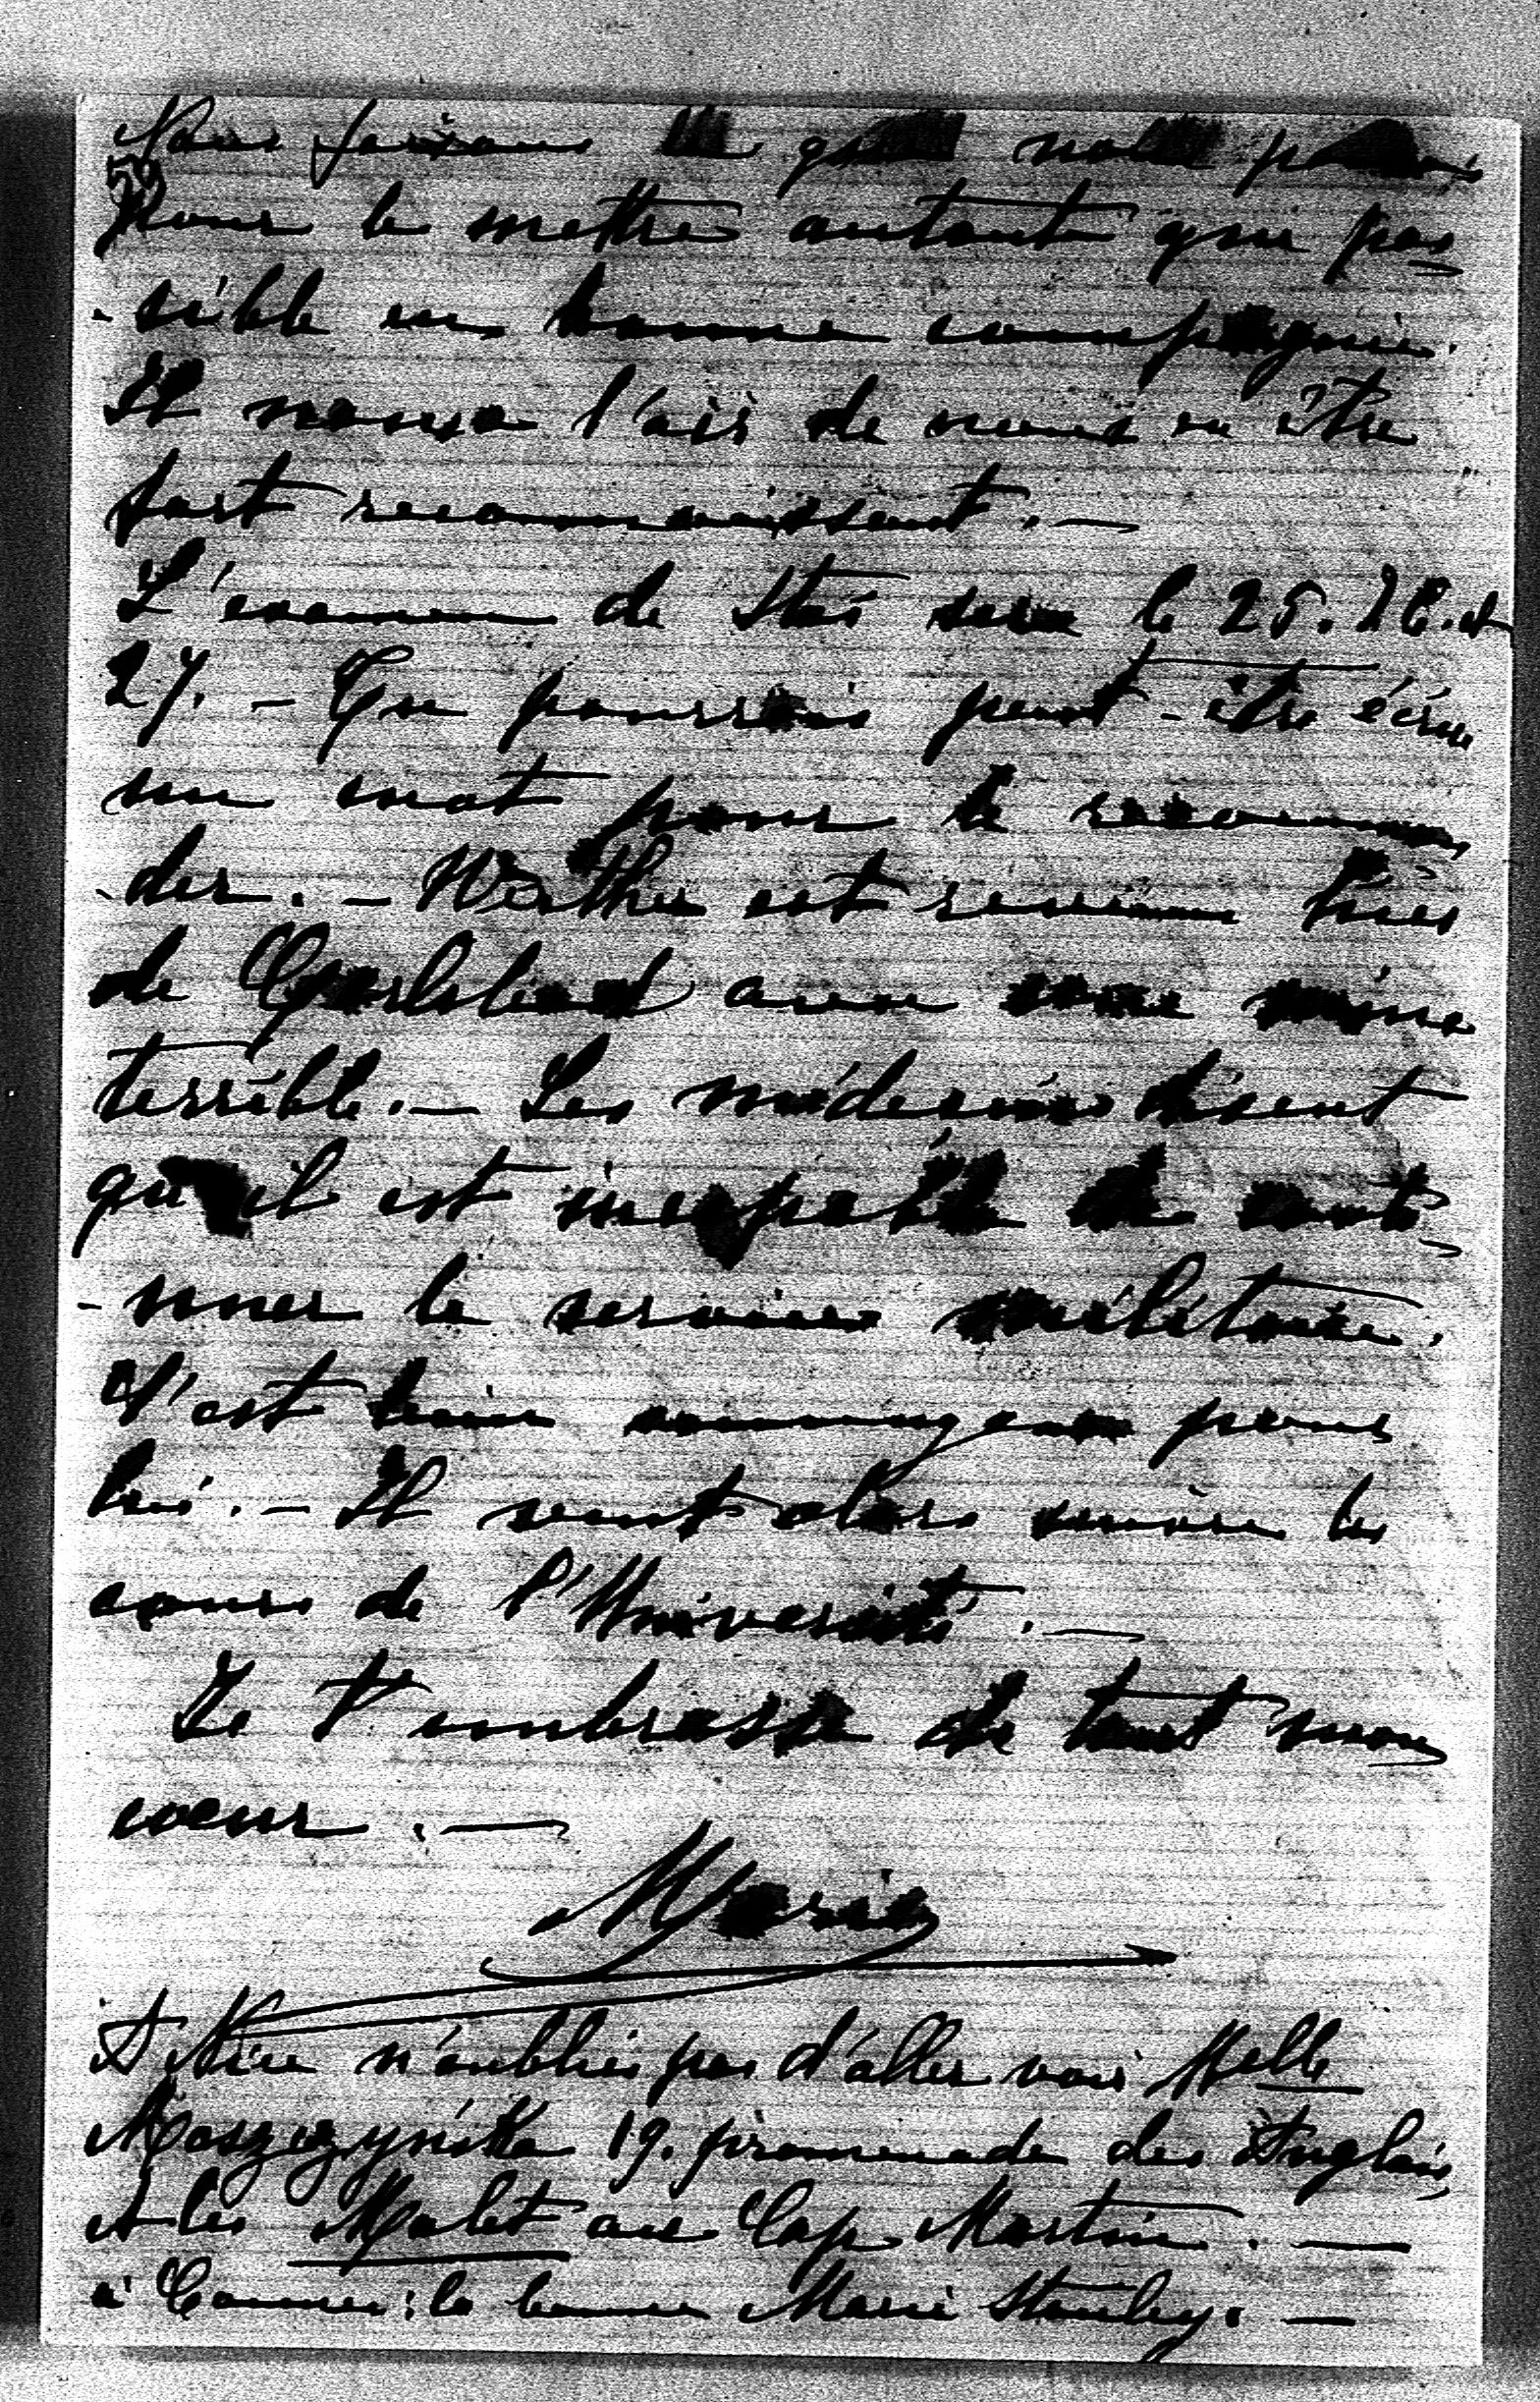 Nous faisons ce que nous pouvons
52
pour le mettre autant que pos
-sible en bonne compagnie.
Il nous a l'air de nous en être
fort reconnaissant. —
L'examen de Stas sera le 25. 26. et
27. - Tu pourrais peut-être écrire
un mot pour le recomman
-der. - Werther est revenu hier
de Carlsbad avec une mine
terrible. — Les médecins disent
qu'il est incapable de conti-
-nuer le service militaire.
C'est bien ennuyeux pour
lui. - Il veut alors suivre les
cours de l'Université. —
Je t'embrasse de tout mon
coeur. —
Marie
A Nice n'oublie pas d'aller voir Melle
Moszczyńska 19. promenade des Anglais
et les Malet au Cap Martin. —
à Cannes: la bonne Marie Stanley. —